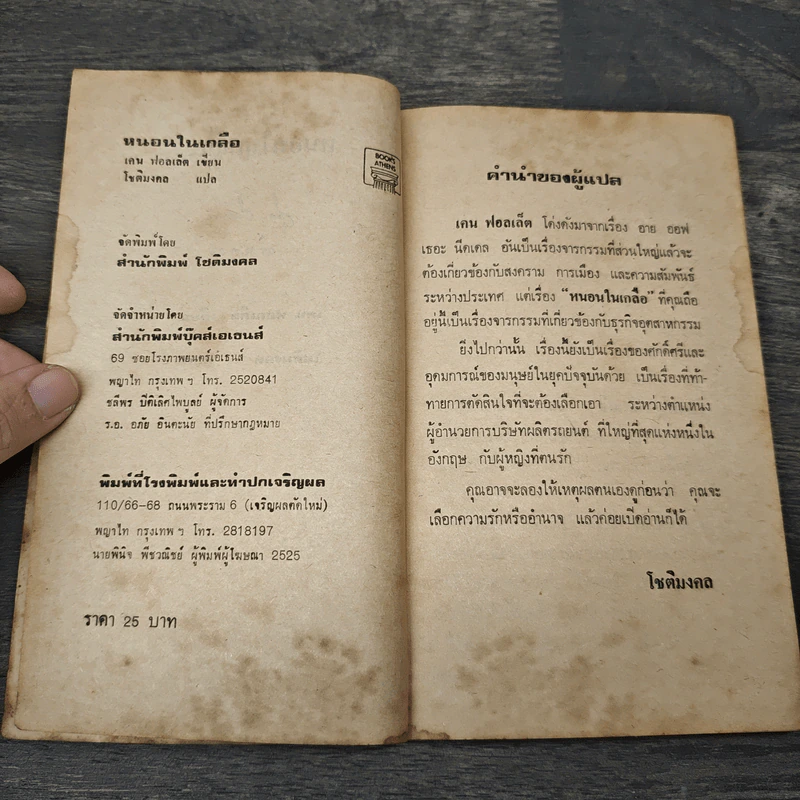 หนอนในเกลือ
เคน ฟอลเล็ต เขียน
โชติมงคล แปล
BOOK'S
ATHENS
จัดพิมพ์โดย
สำนักพิมพ์ โชติมงคล
จัดจำหน่ายโดย
สำนักพิมพ์บุ๊คส์เอเธนส์
69 ซอยโรงภาพยนตร์เอเธนส์
พญาไท กรุงเทพ ฯ โทร. 2520841
ชลีพร ปีติเลิศไพบูลย์ ผู้จัดการ
ร.อ. อภัย อินคะนัย ที่ปรึกษากฎหมาย
พิมพ์ที่โรงพิมพ์และทำปกเจริญผล
110/66-68 ถนนพระราม 6 (เจริญผลตัดใหม่)
พญาไท กรุงเทพ ฯ โทร. 2818197
นายพินิจ พืชวณิชย์ ผู้พิมพ์ผู้โฆษณา 2525
ราคา 25 บาท
คำนำของผู้แปล
เคน ฟอลเล็ต โด่งดังมาจากเรื่อง อาย ออฟ
เธอะ นีดเดล อันเป็นเรื่องจารกรรมที่ส่วนใหญ่แล้วจะ
ต้องเกี่ยวข้องกับสงคราม การเมือง และความสัมพันธ์
ระหว่างประเทศ แต่เรื่อง "หนอนในเกลือ" ที่คุณถือ
อยู่นี้เป็นเรื่องจารกรรมที่เกี่ยวข้องกับธุรกิจอุตสาหกรรม
ยิ่งไปกว่านั้น เรื่องนี้ยังเป็นเรื่องของศักดิ์ศรีและ
อุดมการณ์ของมนุษย์ในยุคปัจจุบันด้วย เป็นเรื่องที่ท้า-
ทายการตัดสินใจที่จะต้องเลือกเอา ระหว่างตำแหน่ง
ผู้อำนวยการบริษัทผลิตรถยนต์ ที่ใหญ่ที่สุดแห่งหนึ่งใน
อังกฤษ กับผู้หญิงที่ตนรัก
คุณอาจจะลองให้เหตุผลตนเองดูก่อนว่า คุณจะ
เลือกความรักหรืออำนาจ แล้วค่อยเปิดอ่านก็ได้
โชติมงคล